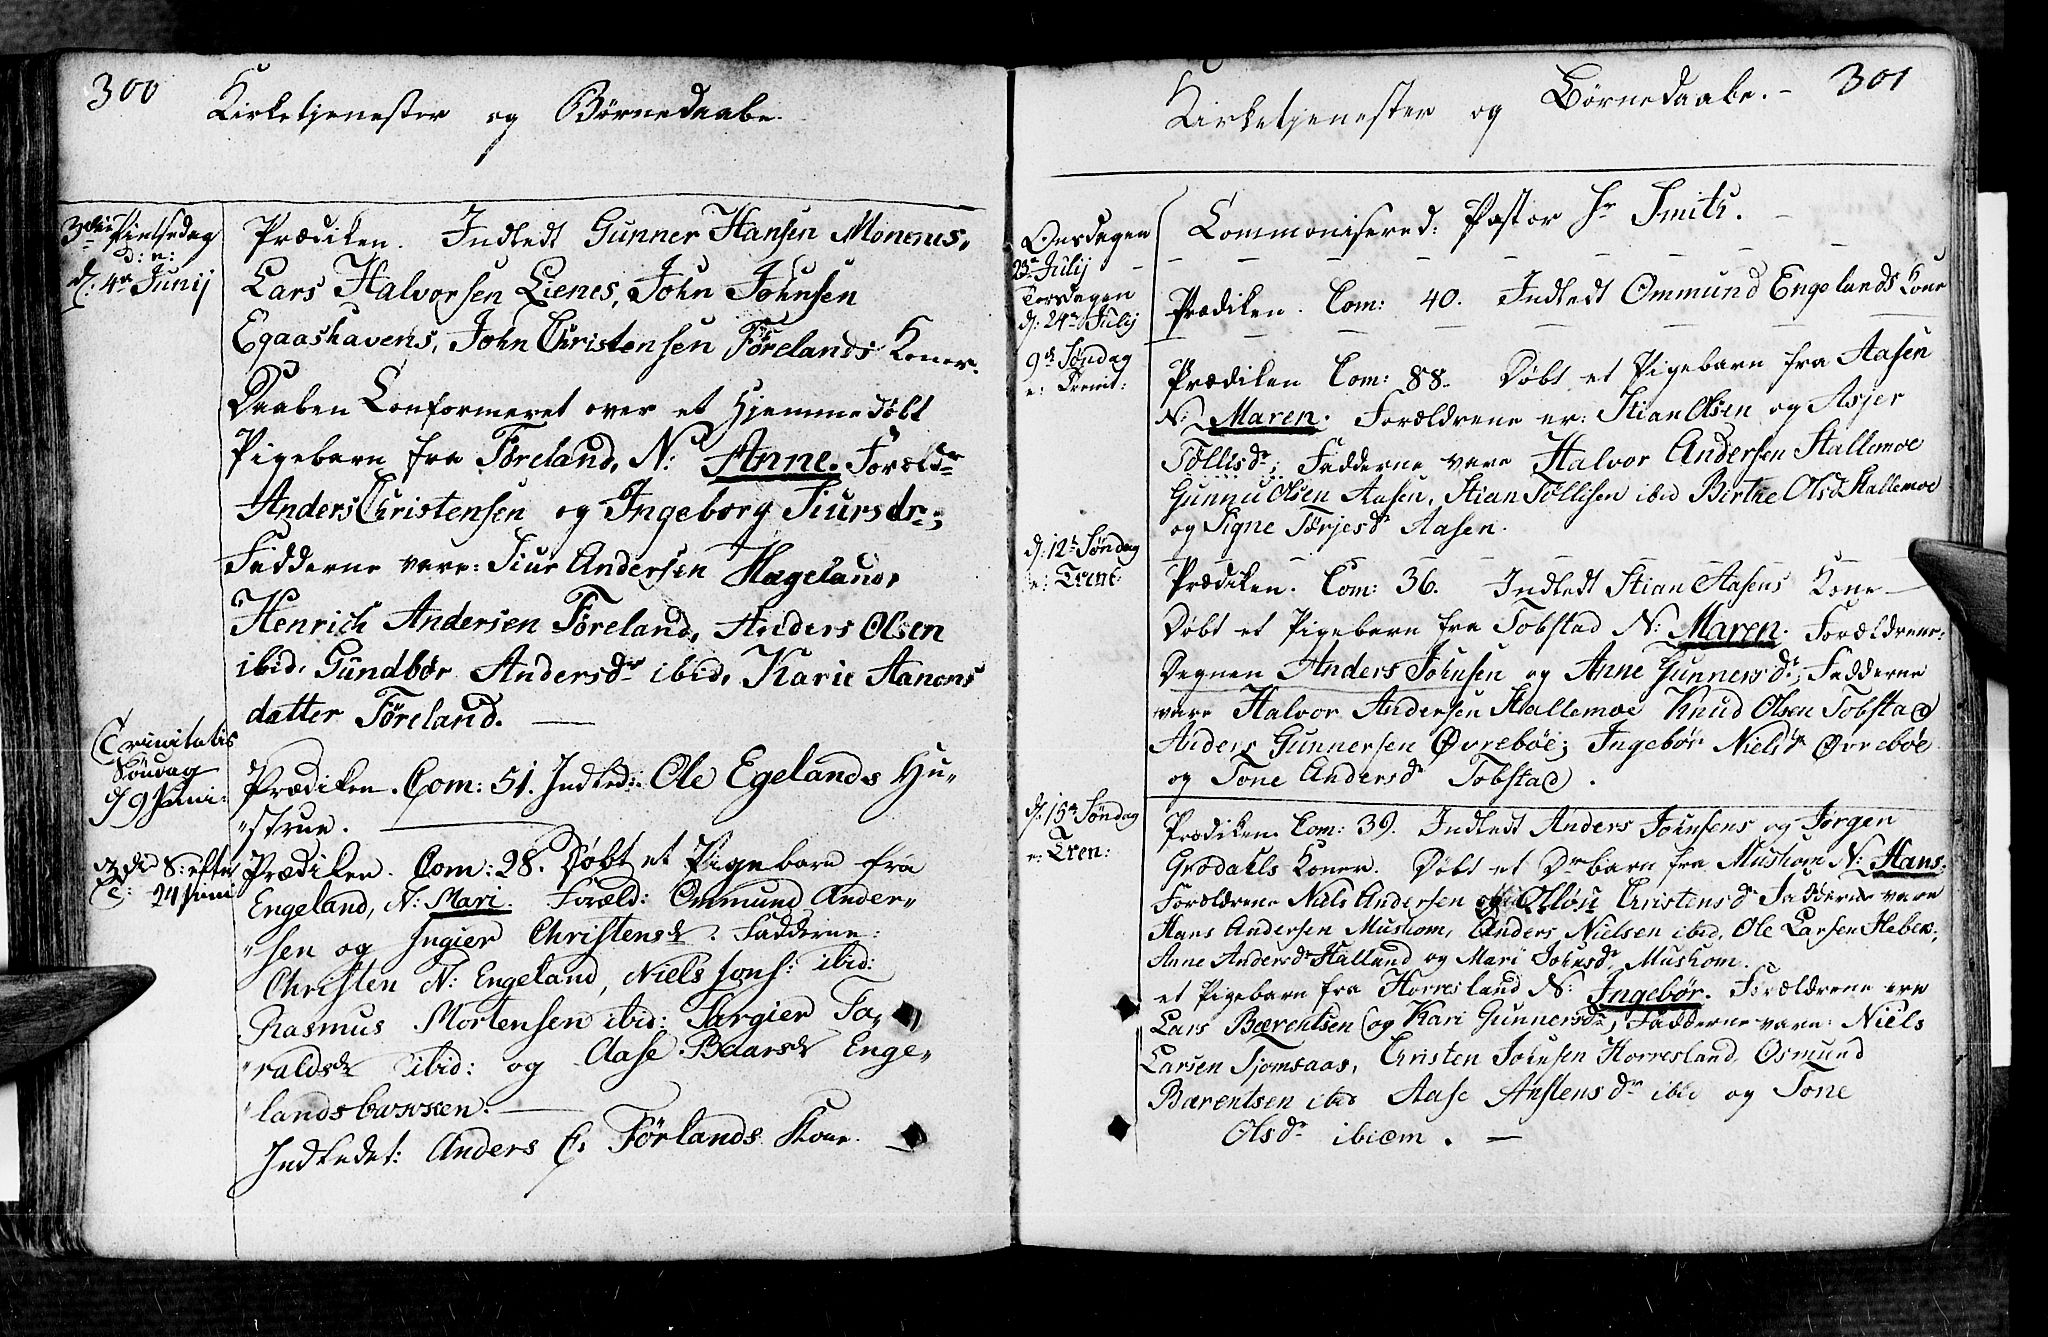 300
Kirketjenester og Børnedaabe.
3die Pintsedag
d: e:
d: 4de Junij
Prædiken. Indledt Gunner Hansen Monems,
Lars Halvorsen Lienes, John Johnsen
Egaashavens, John Christensen Förelands Koner.
Daaben Conformeret over et Hjemmedöbt
Pigebarn fra Föreland, N: Anne. Foreldre
Anders Christensen og Ingeborg Siursdr;
Fadderne vare: Siur Andersen Hægeland,
Henrich Andersen Föreland, Anders Olsen
ibid, Gundbør Andersdr ibid, Karie Aanons
datter Föreland.
Trinitatis
Söndag
d 9 Juni:
Prædiken. Com: 51. Indled: Ole Egelands Hu„
„strue.
3die S: efter
T: 24 Juni
Prædiken. Com: 28. Döbt et Pigebarn fra
Engeland, N: Mari. Foræld: Ommund Ander„
„sen og Ingier Christensdr. Fadderne:
Christen N: Engeland, Niels Jons: ibid:
Rasmus Mortensen ibid: Sargier Ta„
„raldsdr ibid: og Aase Baarsdr Enge„
„landsbakken.
Indledet: Anders C. Förlands Kone.
301
Kirketjenester og Börnedaabe.
Onsdagen
23de Julij
Commonisered: Pastor Hr Smith.
Torsdagen
d: 24de Julij
Prædiken. Com: 40. Indledt Ommund Engelands Kone
9de Söndag
e: Trenit:
Prædiken Com: 88. Döbt et Pigebarn fra Aasen
N: Maren. Forældrene er: Stian Olsen og Asjer
Tøllisdr; Fadderne vare Halvor Andersen Stallemoe
Gunnu Olsen Aasen, Stian Tøllisen ibid Birthe Olsd Stallemoe
og Signe Törjesdr Aasen.
d: 12te Söndag
e: Trent
Prædiken. Com: 36. Indledt Stian Aasens Kone
Döbt et Pigebarn fra Tobstad N: Maren. Forældrene:
Degnen Anders Johnsen og Anne Gunnersdr; Fadderne
vare Halvor Andersen Stallemoe Knud Olsen Tobstad
Anders Gunnersen Øvrebøe; Ingebör Nielsdr Øvrebøe
og Tone Andersdr Tobstad.
d: 15de Söndag
e: Tren:
Prædiken Com: 39. Indledt Anders Johnsens og Jörgen
Grodahls Koner. Döbt et Drbarn fra Mushom N: Hans:
Forældrene Niels Andersen og Christensdr Fadderne vare
Hans Andersen Mushom, Anders Nielsen ibid, Ole Larsen Heben,
Anne Andersdr Halland og Mari Johnsdr Mushom.
et Pigebarn fra Horresland N: Ingebör. Forældrene ere
Lars Bærentsen (og Kari Gunnersdr; Fadderne vare: Niels
Larsen Tjomsaas, Christen Johnsen Horresland, Osmund
Bærentsen ibid Aase Anstensdr ibid og Tone
Olsdr ibidem.